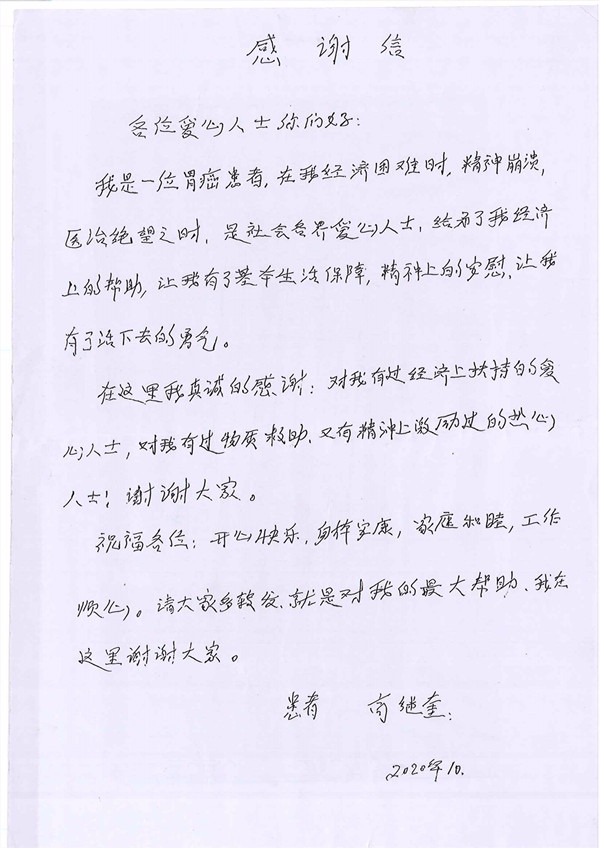 感谢信
各位爱心人士你们好:
我是一位胃癌患者,在我经济困难时,精神崩溃,
医治绝望之时,是社会各界爱心人士,给予了我经济
上的帮助,让我有了基本生活保障,精神上的安慰、让我
有了活下去的勇气。
在这里我真诚的感谢:对我有过经济上扶持的爱
心人士,对我有过物质救助、又有精神上激励过的热心
人士!谢谢大家。
祝福各位:开心快乐,身体安康,家庭和睦,工作
顺心。请大家多转发、就是对我的最大帮助、我在
这里谢谢大家。
患者 继奎:
2020年10.